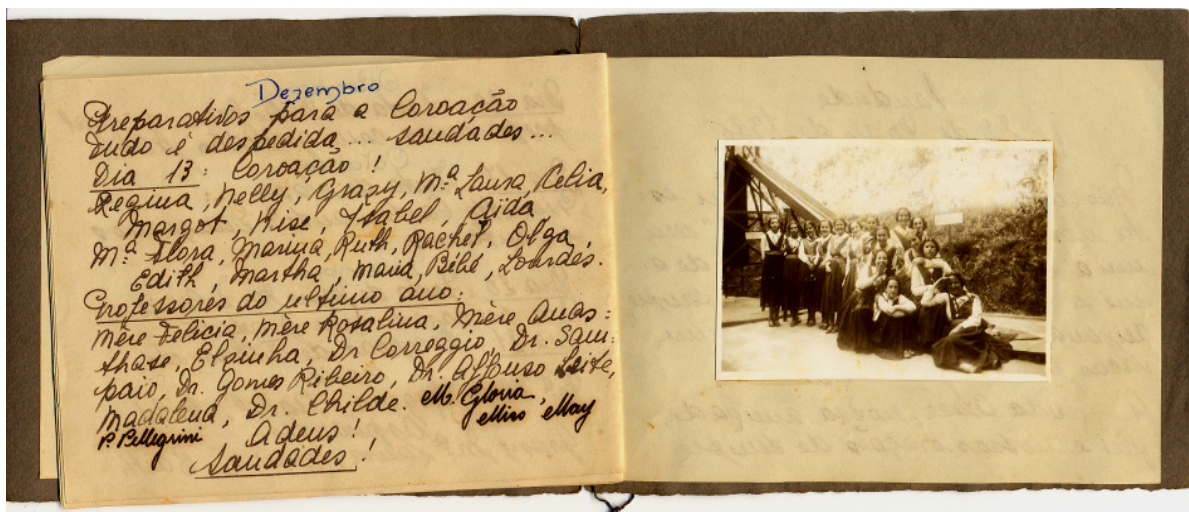 Dezembro
Preparativos para a Coroação
Tudo é despedida... saudades...
Dia 13: Coroação!
Regina, Nelly, Grazy, Mª Laura, Celia,
Margot, Nise, Ysabel, Aida,
Mª Flora, Marina, Ruth, Rachel, Olga,
Edith, Martha, Maria, Bébé, Lourdes.
Professores do ultimo ano:
Mère Felicia, Mère Rosalina, Mère Anas=
thase, Elzinha, Dr Correggio, Dr. Sam-
paio, Dr. Gomes Ribeiro, Dr. Affonso Leite,
Madalena, Dr. Childe. M. Gloria,
Miss May
P. Pellegrini Adeus!
Saudades!